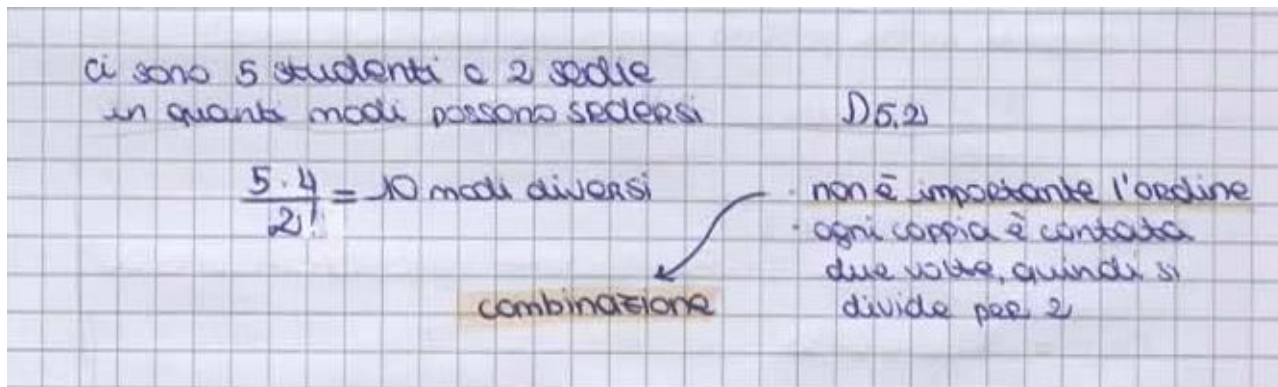 ci sono 5 studenti e 2 sedie
in quanti modi possono sedersi
D5,2
5·4/2! = 10 modi diversi
· non è importante l'ordine
· ogni coppia è contata
due volte, quindi si
divide per 2
combinazione